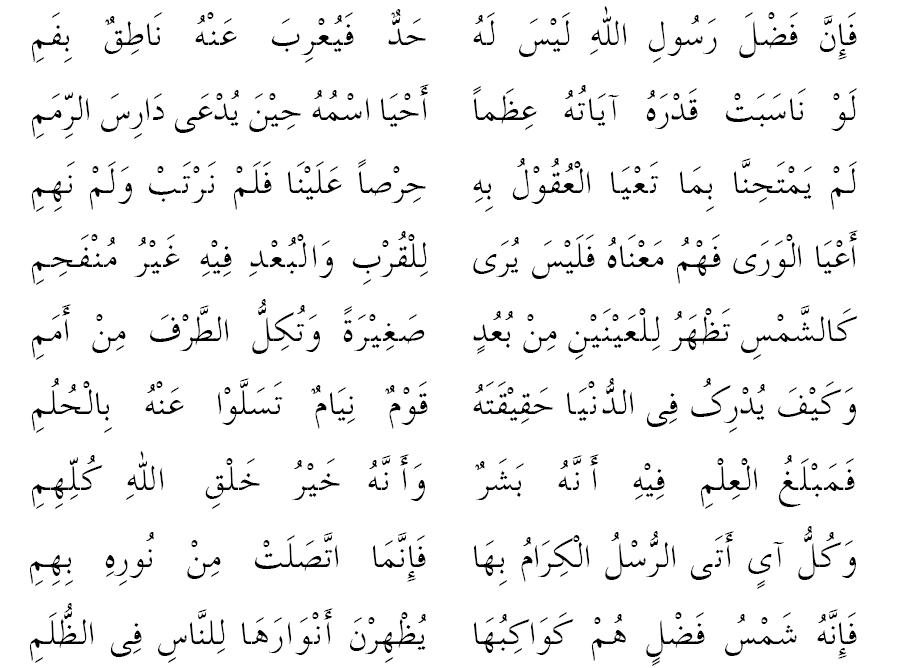 فَإِنَّ فَضْلَ رَسُولِ اللهِ لَيْسَ لَهُ حَدٌّ فَيُعْرِبَ عَنْهُ نَاطِقٌ بِفَمِ
لَوْ نَاسَبَتْ قَدْرَهُ آيَاتُهُ عِظَماً أَحْيَا اسْمُهُ حِيْنَ يُدْعَى دَارِسَ الرِّمَمِ
لَمْ يَمْتَحِنَّا بِمَا تَعْيَا الْعُقُوْلُ بِهِ حِرْصاً عَلَيْنَا فَلَمْ نَرْتَبْ وَلَمْ نَهِمِ
أَعْيَا الْوَرَى فَهْمُ مَعْنَاهُ فَلَيْسَ يُرَى لِلْقُرْبِ وَالْبُعْدِ فِيْهِ غَيْرُ مُنْفَحِمِ
كَالشَّمْسِ تَظْهَرُ لِلْعَيْنَيْنِ مِنْ بُعُدٍ صَغِيْرَةً وَتُكِلُّ الطَّرْفَ مِنْ أَمَمِ
وَكَيْفَ يُدْرِكُ فِى الدُّنْيَا حَقِيْقَتَهُ قَوْمٌ نِيَامٌ تَسَلَّوْا عَنْهُ بِالْحُلُمِ
فَمَبْلَغُ الْعِلْمِ فِيْهِ أَنَّهُ بَشَرٌ وَأَنَّهُ خَيْرُ خَلْقِ اللهِ كُلِّهِمِ
وَكُلُّ آيٍ أَتَى الرُّسْلُ الْكِرَامُ بِهَا فَإِنَّمَا اتَّصَلَتْ مِنْ نُورِهِ بِهِمِ
فَإِنَّهُ شَمْسُ فَضْلٍ هُمْ كَوَاكِبُهَا يُظْهِرْنَ أَنْوَارَهَا لِلنَّاسِ فِى الظُّلَمِ